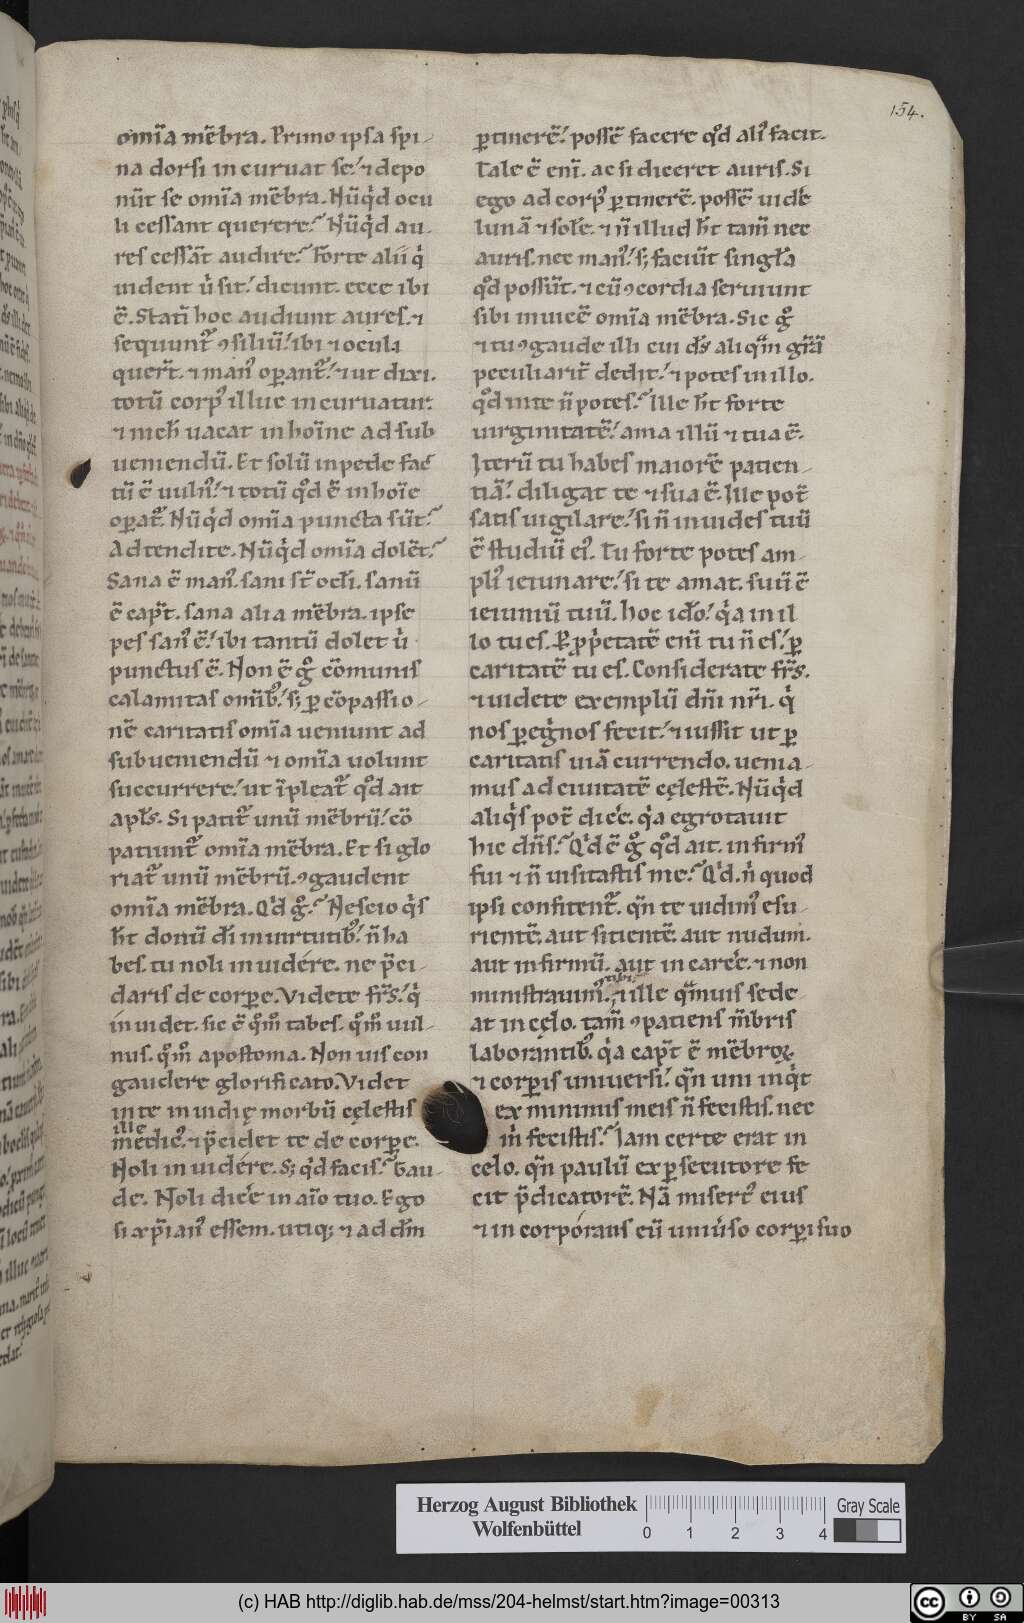 154.
omīa mēbra. Primo ipsa spi-
na dorsi incuruat se.' ⁊ depo
nūt se omīa mēbra. Nūqͥd ocu
li cessant querere? Nūqͥd au-
res cessāt audire? Forte alii qͥ
uident uͥ sit.' dicunt. ecce ibi
ē. Statī hoc audiunt aures. ⁊
sequunt᷑ ꝯsiliū.' ibi ⁊ oculi
quer̄t. ⁊ manꝰ oꝑant᷑.' ⁊ ut dixi.
totū corpꝰ illuc incuruatur.
⁊ nich̄ uacat in hoīne ad sub
ueniendū. Et solū in pede fac̄
tū ē uulnꝰ.' ⁊ totū qͦd ē in hoīe
oꝑat᷑. Nūqͥd omīa puncta sūt?
Adtendite. Nūqͥd omīa dolēt?
Sana ē manꝰ. sani st̄ ocłi. sanū
ē cap̄t. sana alia mēbra. ipse
pes sanꝰ ē.' ibi tantū dolet uͥ
punctus ē. Non ē gͦ cōmunis
calamitas omībꝰ.' s; ꝑ cōpassio-
nē caritatis omīa ueniunt ad
subueniendū ⁊ omīa uolunt
succurrere.' ut īpleat᷑ qͦd ait
apłs. Si patit᷑ unū mēbrū.' cō
patiunt᷑ omīa mēbra. Et si glo
riat᷑ unū mēbrū. ꝯgaudent
omīa mēbra. Qͥd gͦ? Nescio qͥs
h̄t donū dī in uirtutibꝰ.' n̄ ha
bes. tu noli inuidére. ne p̄ci-
daris de corꝑe. Videte fr̄s.' qͥ
inuidet. sic ē qͦm̄ tabes. qͦm̄ uul-
nus. qͦm̄ apostoma. Non uis con
gaudere glorificato. Videt
in te inuidię morbū cęlestis
ille
medicꝰ. ⁊ p̄cidet te de corꝑe.
Noli inuidére. S; qͥd facis? Gau-
de. Noli dicͤe in aīo tuo. Ego
si xp̄ianꝰ essem. utiq; ⁊ ad dm̄
ꝑtinerē.' possē facere qͦd aliꝰ facit.
Tale ē enī. ac si diceret auris. Si
ego ad corpꝰ ꝑtinerē. possē uidē
lunā ⁊ solē. ⁊ n̄ illud h̄t tam̄ nec
auris. nec manꝰ.' s; faciūt singła
qͦd possūt. ⁊ cū ꝯcordia seruiunt
sibi inuicē omīa mēbra. Sic gͦ
⁊ tu ꝯgaude illi cui ds̄ aliqͣm gr̄ā
peculiarit᷑ dedit.' ⁊ potes in illo.
qͦd in te n̄ potes? Ille h̄t forte
uirginitatē.' ama illū ⁊ tua ē.
Iterū tu habes maiorē patien-
tiā.' diligat te ⁊ sua ē. Ille pot̄
satis uigilare.' si n̄ inuides tuū
ē studiū eiꝰ. Tu forte potes am-
plꝰ ieiunare.' si te amat. suū ē
ieiuniū tuū. hoc idō.' qͥa in il
lo tu es. Ꝑ ꝓpͥetatē enī tu n̄ es.' ꝑ
caritatē tu es. Considerate fr̄s.
⁊ uidete exemplū dn̄i nr̄i. qͥ
nos ꝑegͥnos fecit.' ⁊ iussit ut ꝑ
caritatis uiā currendo. uenia-
mus ad ciuitatē cęlestē. Nūqͥd
aliqͥs pot̄ dicͤe. qͥa egrotauit
hic dn̄s? Qͥd ē gͦ qͦd ait. infirmꝰ
fui ⁊ n̄ uisitastis me? Qͥd. n̄ quod
ipsi confitent᷑. qn̄ te uidimꝰ esu-
rientē. aut sitientē. aut nudum.
aut infirmū. aut in carcͤe. ⁊ non
tibi
ministrauimꝰ. ⁊ ille qͣmuis sede-
at in cęlo. tam̄ ꝯpatiens m̄bris
laborantibꝰ. qͥa cap̄t ē mēbroꝝ
⁊ corꝑis uniuersi.' qn̄ uni inqͥt
ex minimis meis n̄ fecistis. nec
mͥ fecistis? Iam certe erat in
celo. qn̄ paulū ex ꝑsecutore fe
cit p̄dicatorē. Nā misertꝰ eius
⁊ incorpórans eū uniuͥso corꝑi suo
Herzog August Bibliothek
Wolfenbüttel
0 1 2 3 4
Gray Scale
(c) HAB http://diglib.hab.de/mss/204-helmst/start.htm?image=00313
cc BY SA